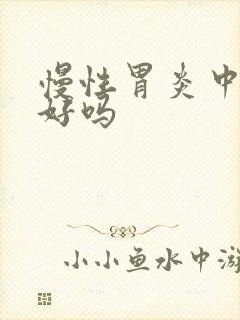 慢性胃炎中
好吗
小小鱼水中游